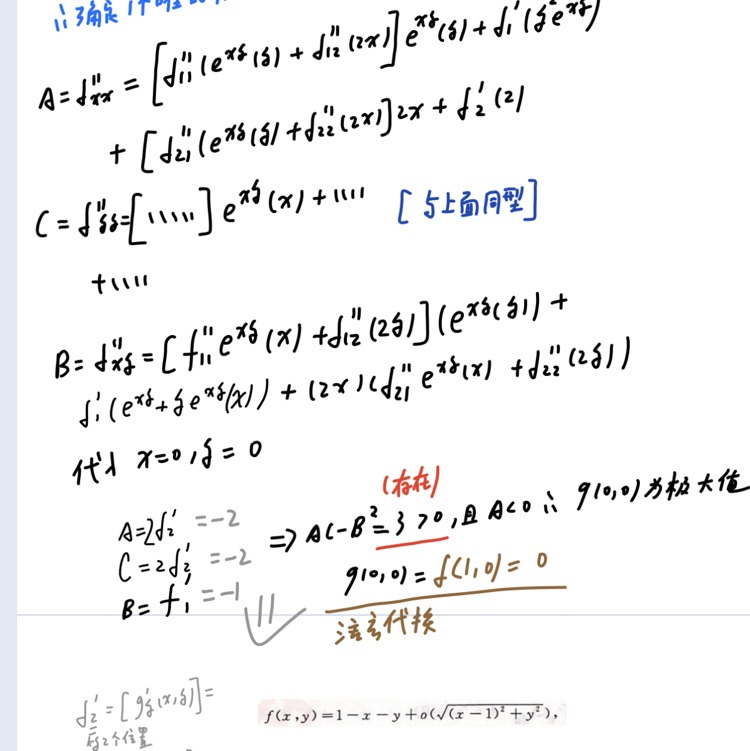 A=f''xx = [f''11(e^xy(y) + f''12(2x)] e^xy(y) + f'1(y²e^xy)
+ [f''21(e^xy(y) + f''22(2x)] 2x + f'2(2)
C = f''yy = [ \\\\\ ] e^xy(x) + \\\\ [与上面同型]
+ \\\\
B = f''xy = [f''11 e^xy(x) + f''12(2y)] (e^xy(y) +
f'1(e^xy + y e^xy(x)) + (2x)(f''21 e^xy(x) + f''22(2y))
代入 x=0, y=0
(存在)
A=2f'2 = -2
C=2f'2 = -2
B= f'1 = -1
⇒ AC-B²=3>0, 且 A<0 ∴ g(0,0)为极大值
g(0,0) = f(1,0) = 0
注意代换
f'2 = [g'y(x,y)] =
2个位置
f(x,y)=1-x-y+o(√((x-1)²+y²)),